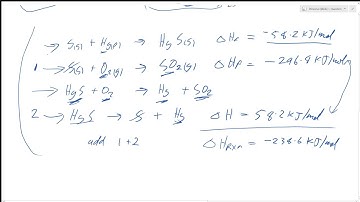 → S(s) + Hg(l) → HgS(s) ΔHf = -58.2 KJ/mol
1 → S(s) + O2(g) → SO2(g) ΔHf = -296.8 KJ/mol
→ HgS + O2 → Hg + SO2
2 → HgS → S + Hg ΔH = 58.2 KJ/mol
add 1+2 ΔHRxn = -238.6 KJ/mol